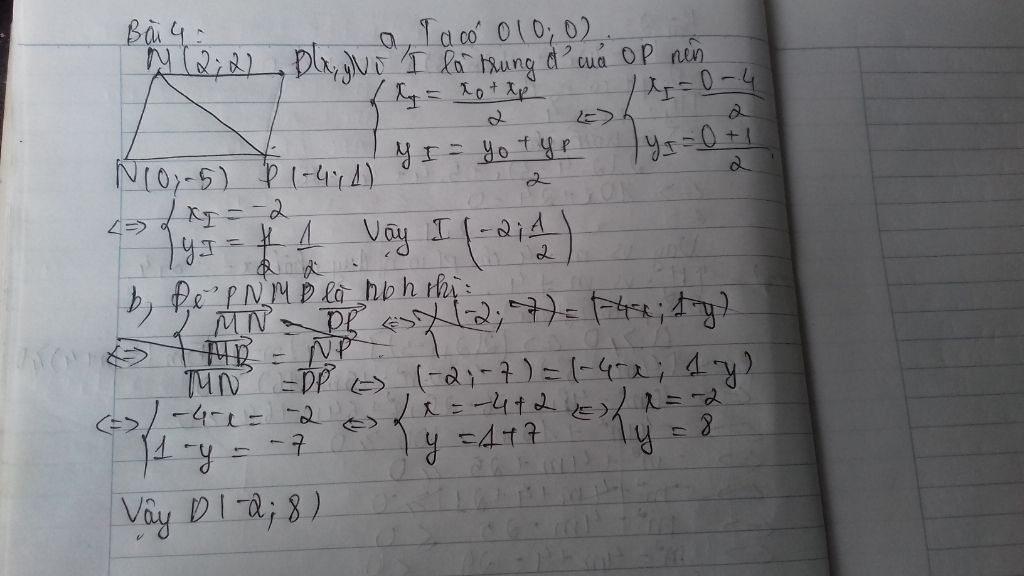 Bài 4:
a, Ta có O(0; 0).
M(2; 2) D(x, y) Vì I là trung đ' của OP nên
{ x_I = (x_O + x_P)/2 ⇔ { x_I = (0 - 4)/2
y_I = (y_O + y_P)/2 y_I = (0 + 1)/2
N(0; -5) P(-4; 1)
⇔ { x_I = -2
y_I = 1/2 . Vậy I (-2; 1/2)
b, Để PNMD là hbh thì:
MN = DP ⇔ { (-2; -7) = (-4-x; 1-y)
⇔ MD = NP
MN = DP ⇔ (-2; -7) = (-4-x; 1-y)
⇔ { -4-x = -2 ⇔ { x = -4+2 ⇔ { x = -2
1-y = -7 y = 1+7 y = 8
Vậy D(-2; 8)